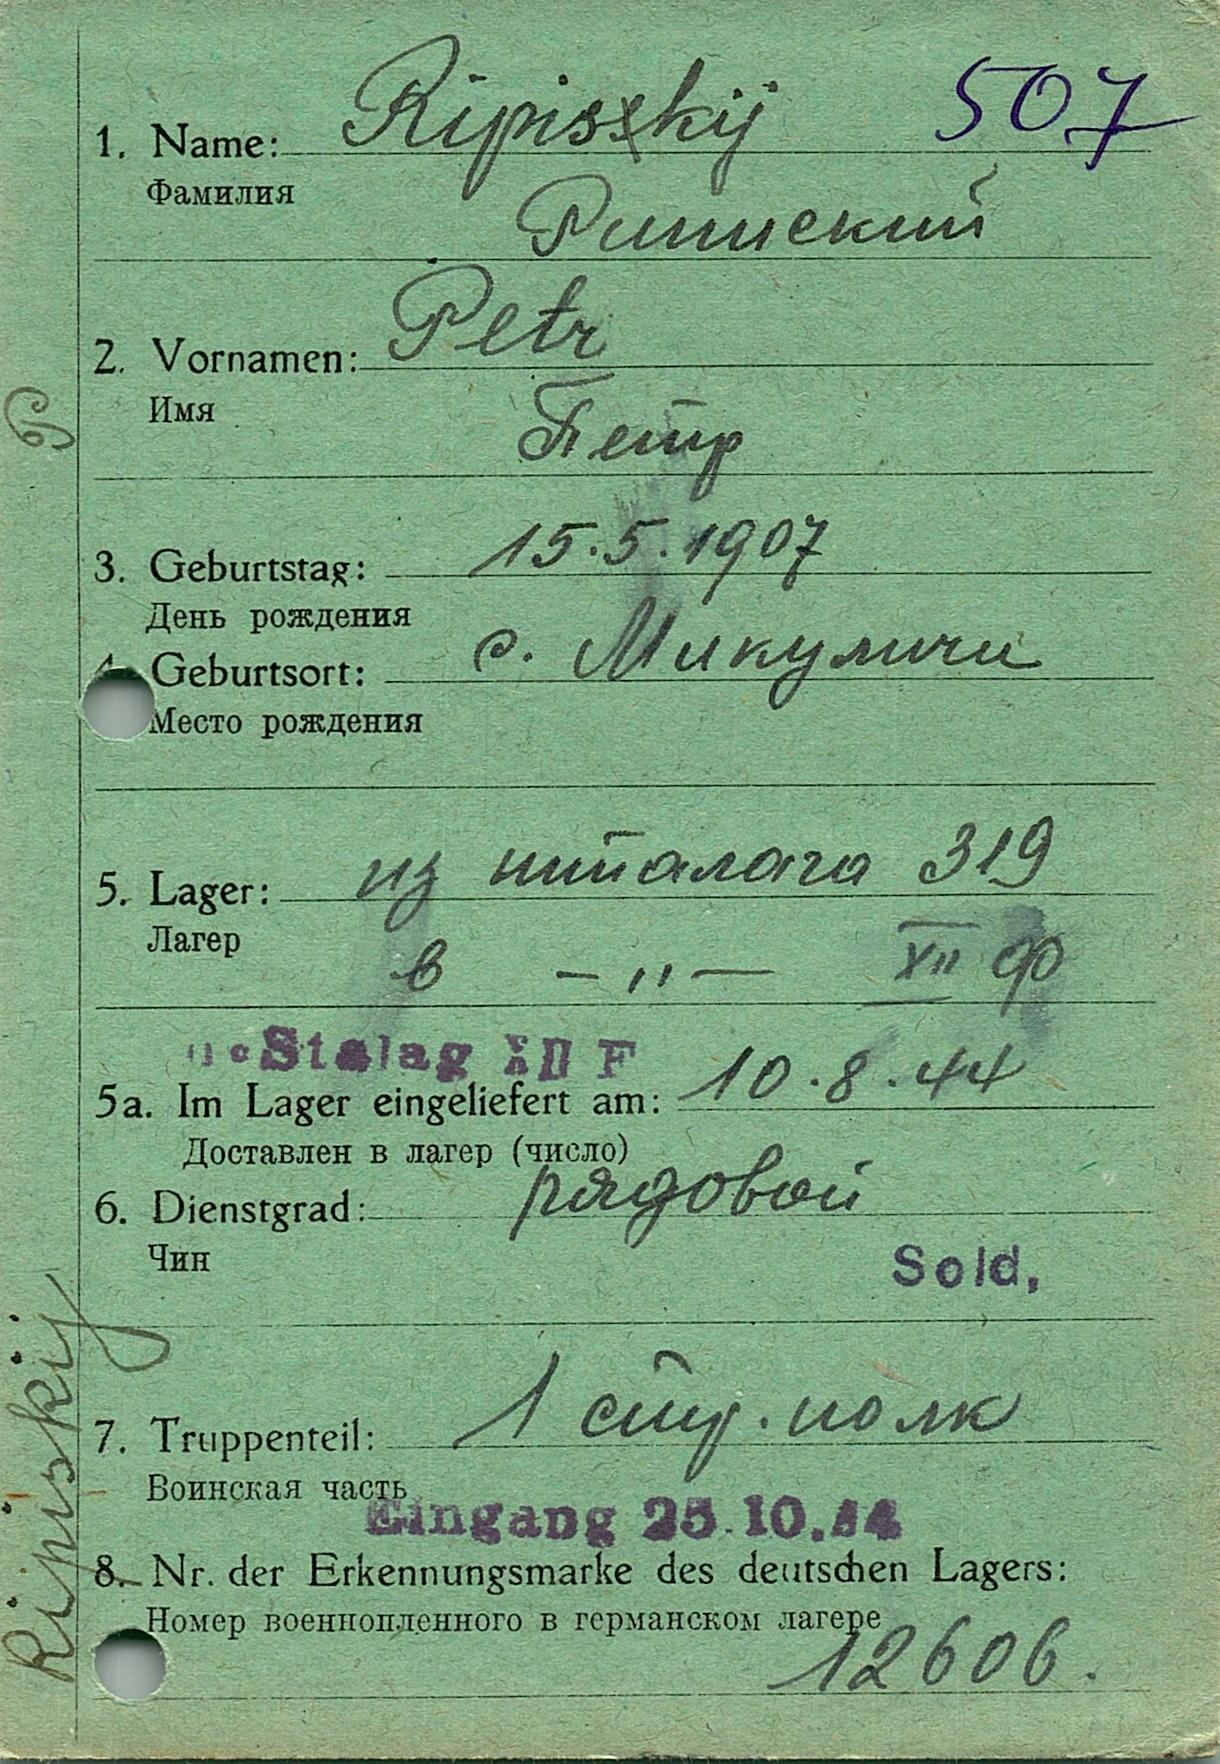 507
1. Name: Ripiskij
Фамилия
Рипиский
2. Vornamen: Petr
Имя
Петр
3. Geburtstag: 15.5.1907
День рождения
4. Geburtsort: с. Микуличи
Место рождения
5. Lager: из шталага 319
Лагер
в — " — XII Ф
Stalag XII F
5a. Im Lager eingeliefert am: 10.8.44
Доставлен в лагер (число)
6. Dienstgrad: рядовой
Чин
Sold.
7. Truppenteil: 1 стр. полк
Воинская часть
Eingang 25.10.44
8. Nr. der Erkennungsmarke des deutschen Lagers:
Номер военнопленного в германском лагере
12606.
Р
Ripiskij